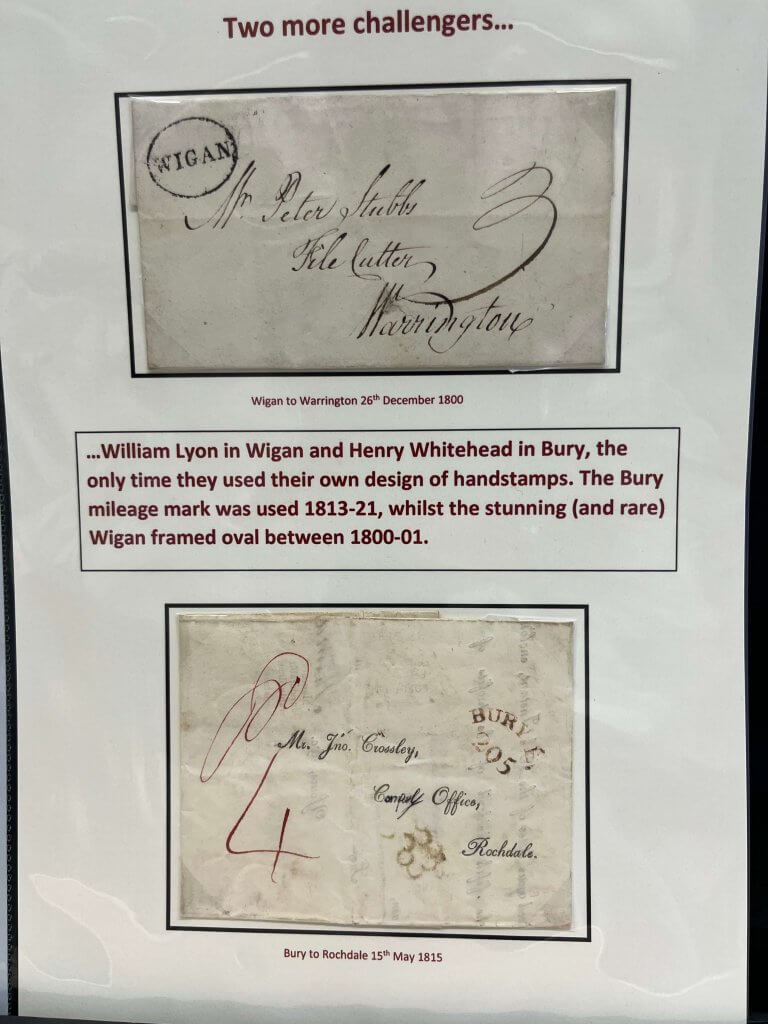 Two more challengers...
WIGAN
Mr. Peter Stubbs
3
File Cutter
Warrington
Wigan to Warrington 26th December 1800
...William Lyon in Wigan and Henry Whitehead in Bury, the
only time they used their own design of handstamps. The Bury
mileage mark was used 1813-21, whilst the stunning (and rare)
Wigan framed oval between 1800-01.
BURY L
205
Mr. Jno. Crossley,
Office,
4
Rochdale.
Bury to Rochdale 15th May 1815